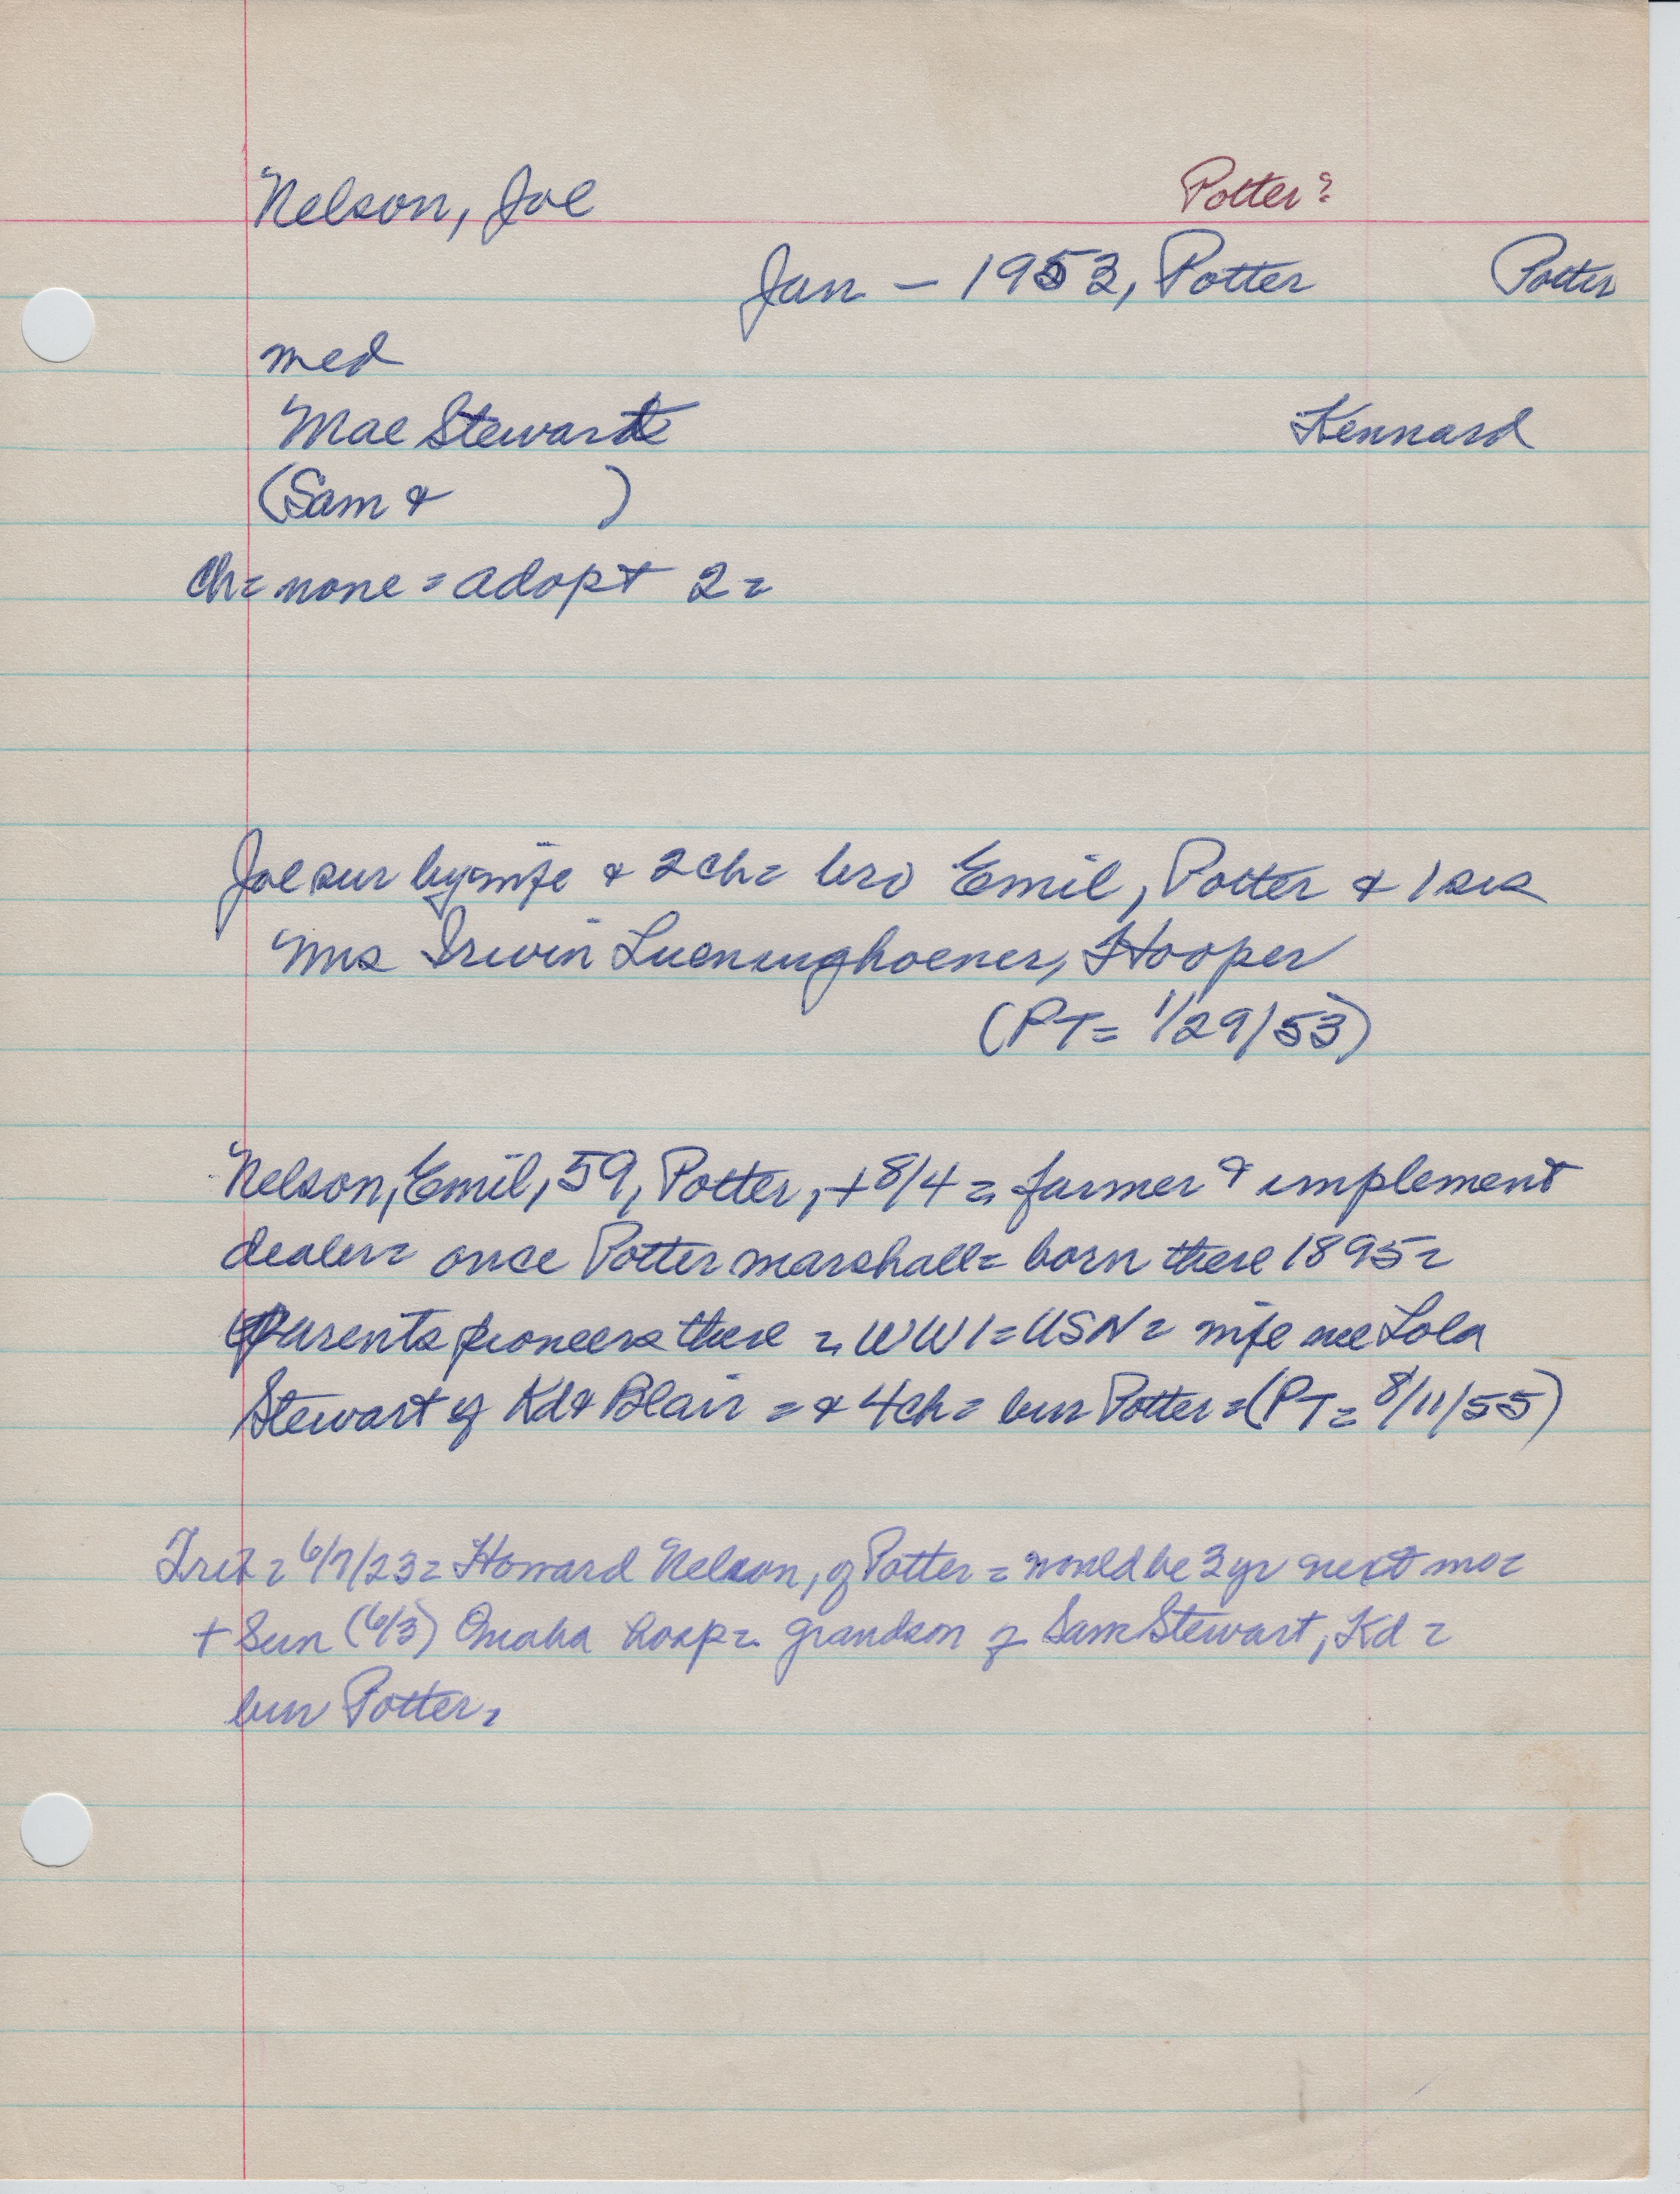 Nelson, Joe
Potter?
Jan - 1953, Potter Potter
med
Mae Stewart Kennard
(Sam & )
Ch= none = adopt 2 =
Joe sur by wife & 2 ch = bro Emil, Potter & 1 sis
Mrs Irwin Lueninghoener, Hooper
(PT = 1/29/53)
Nelson, Emil, 59, Potter, + 8/4 = farmer & implement
dealer = once Potter marshall = born there 1895 =
Parents pioneers there = WW1 = USN = wife nee Lola
Stewart of Kd & Blair = & 4 ch = bur Potter = (PT = 8/11/55)
= 6/7/23 = Howard Nelson, of Potter = would be 3 yr next mo =
+ Sun (6/3) Omaha hosp = grandson of Sam Stewart, Kd =
bur Potter =